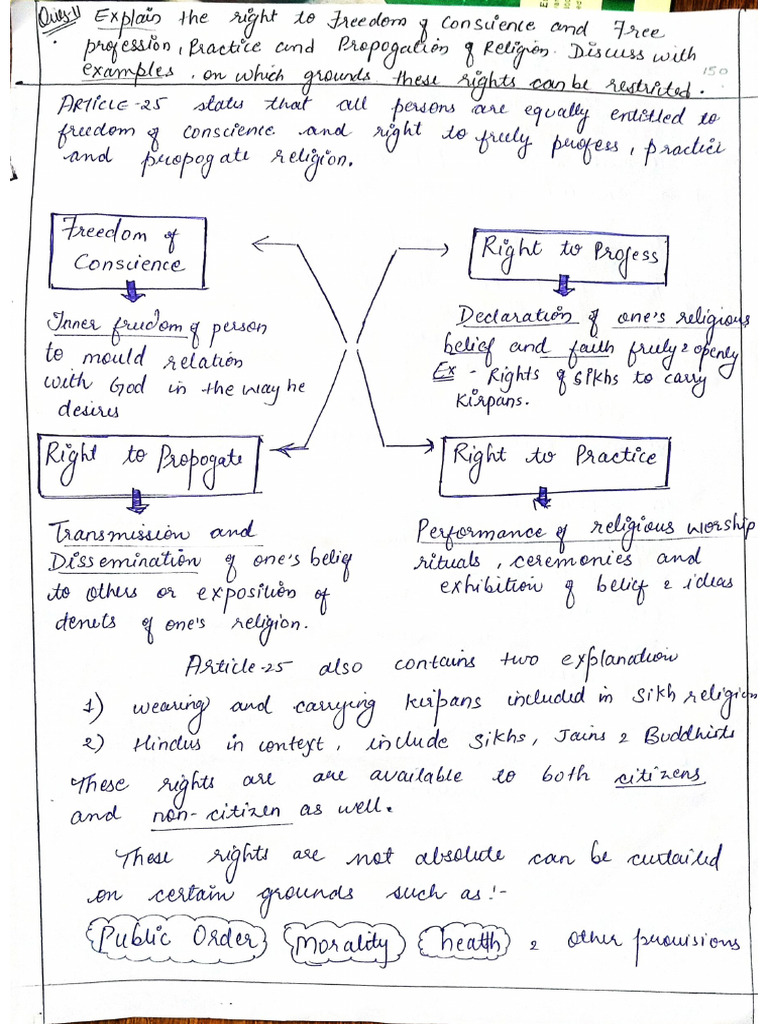 Ques-11 Explain the right to Freedom of Conscience and Free
profession, Practice and Propogation of Religion. Discuss with
examples, on which grounds these rights can be restricted. 150
ARTICLE-25 states that all persons are equally entitled to
freedom of conscience and right to freely profess, practice
and propogate religion.
Freedom of
Conscience
Right to Profess
Inner freedom of person
to mould relation
with God in the way he
desires
Declaration of one's religious
belief and faith freely & openly
Ex - Rights of Sikhs to carry
Kirpans.
Right to Propogate
Right to Practice
Transmission and
Dissemination of one's belief
to others or exposition of
denets of one's religion.
Performance of religious worship
rituals, ceremonies and
exhibition of belief & ideas
Article-25 also contains two explanation
1) wearing and carrying kirpans included in Sikh religion
2) Hindus in context, include Sikhs, Jains & Buddhists
These rights are are available to both citizens
and non-citizen as well.
These rights are not absolute can be curtailed
on certain grounds such as:-
Public Order, Morality, heatth & other provisions